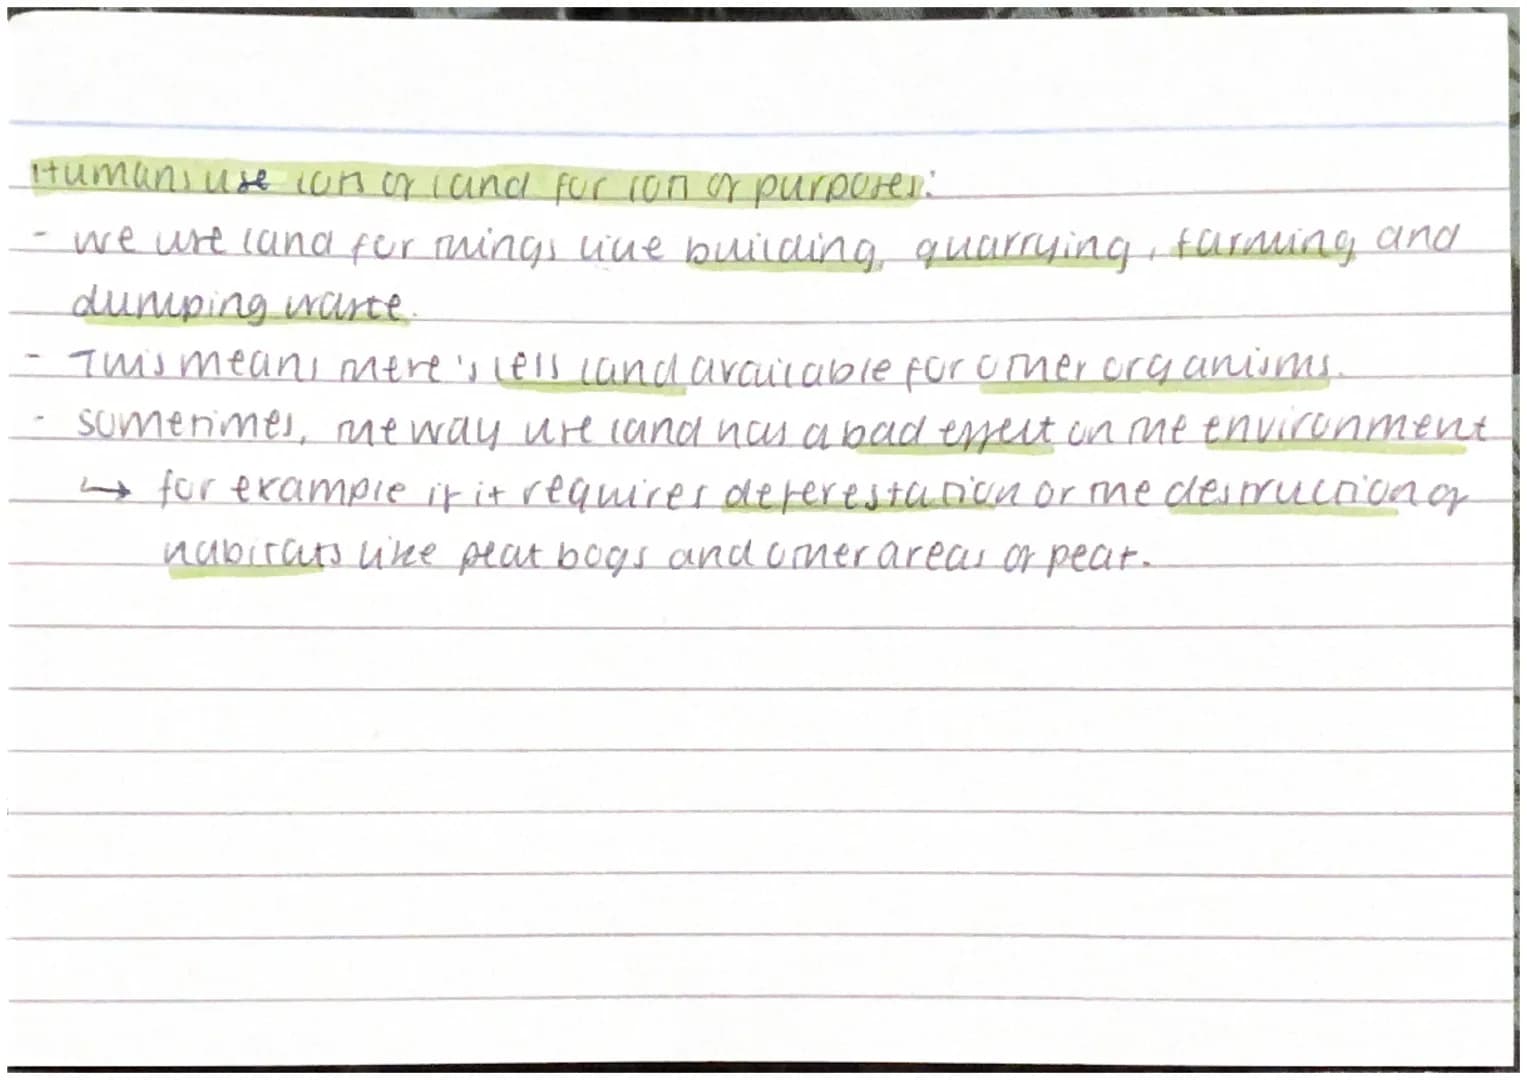 Humans use lots of land for lots of purposes:
- we use land for things like building, quarrying, farming and
dumping waste.
- This means there's less land available for other organisms.
- sometimes, the way use land has a bad effect on the environment
↳ for example if it requires deforestation or the destruction of
habitats like peat bogs and other areas of peat.